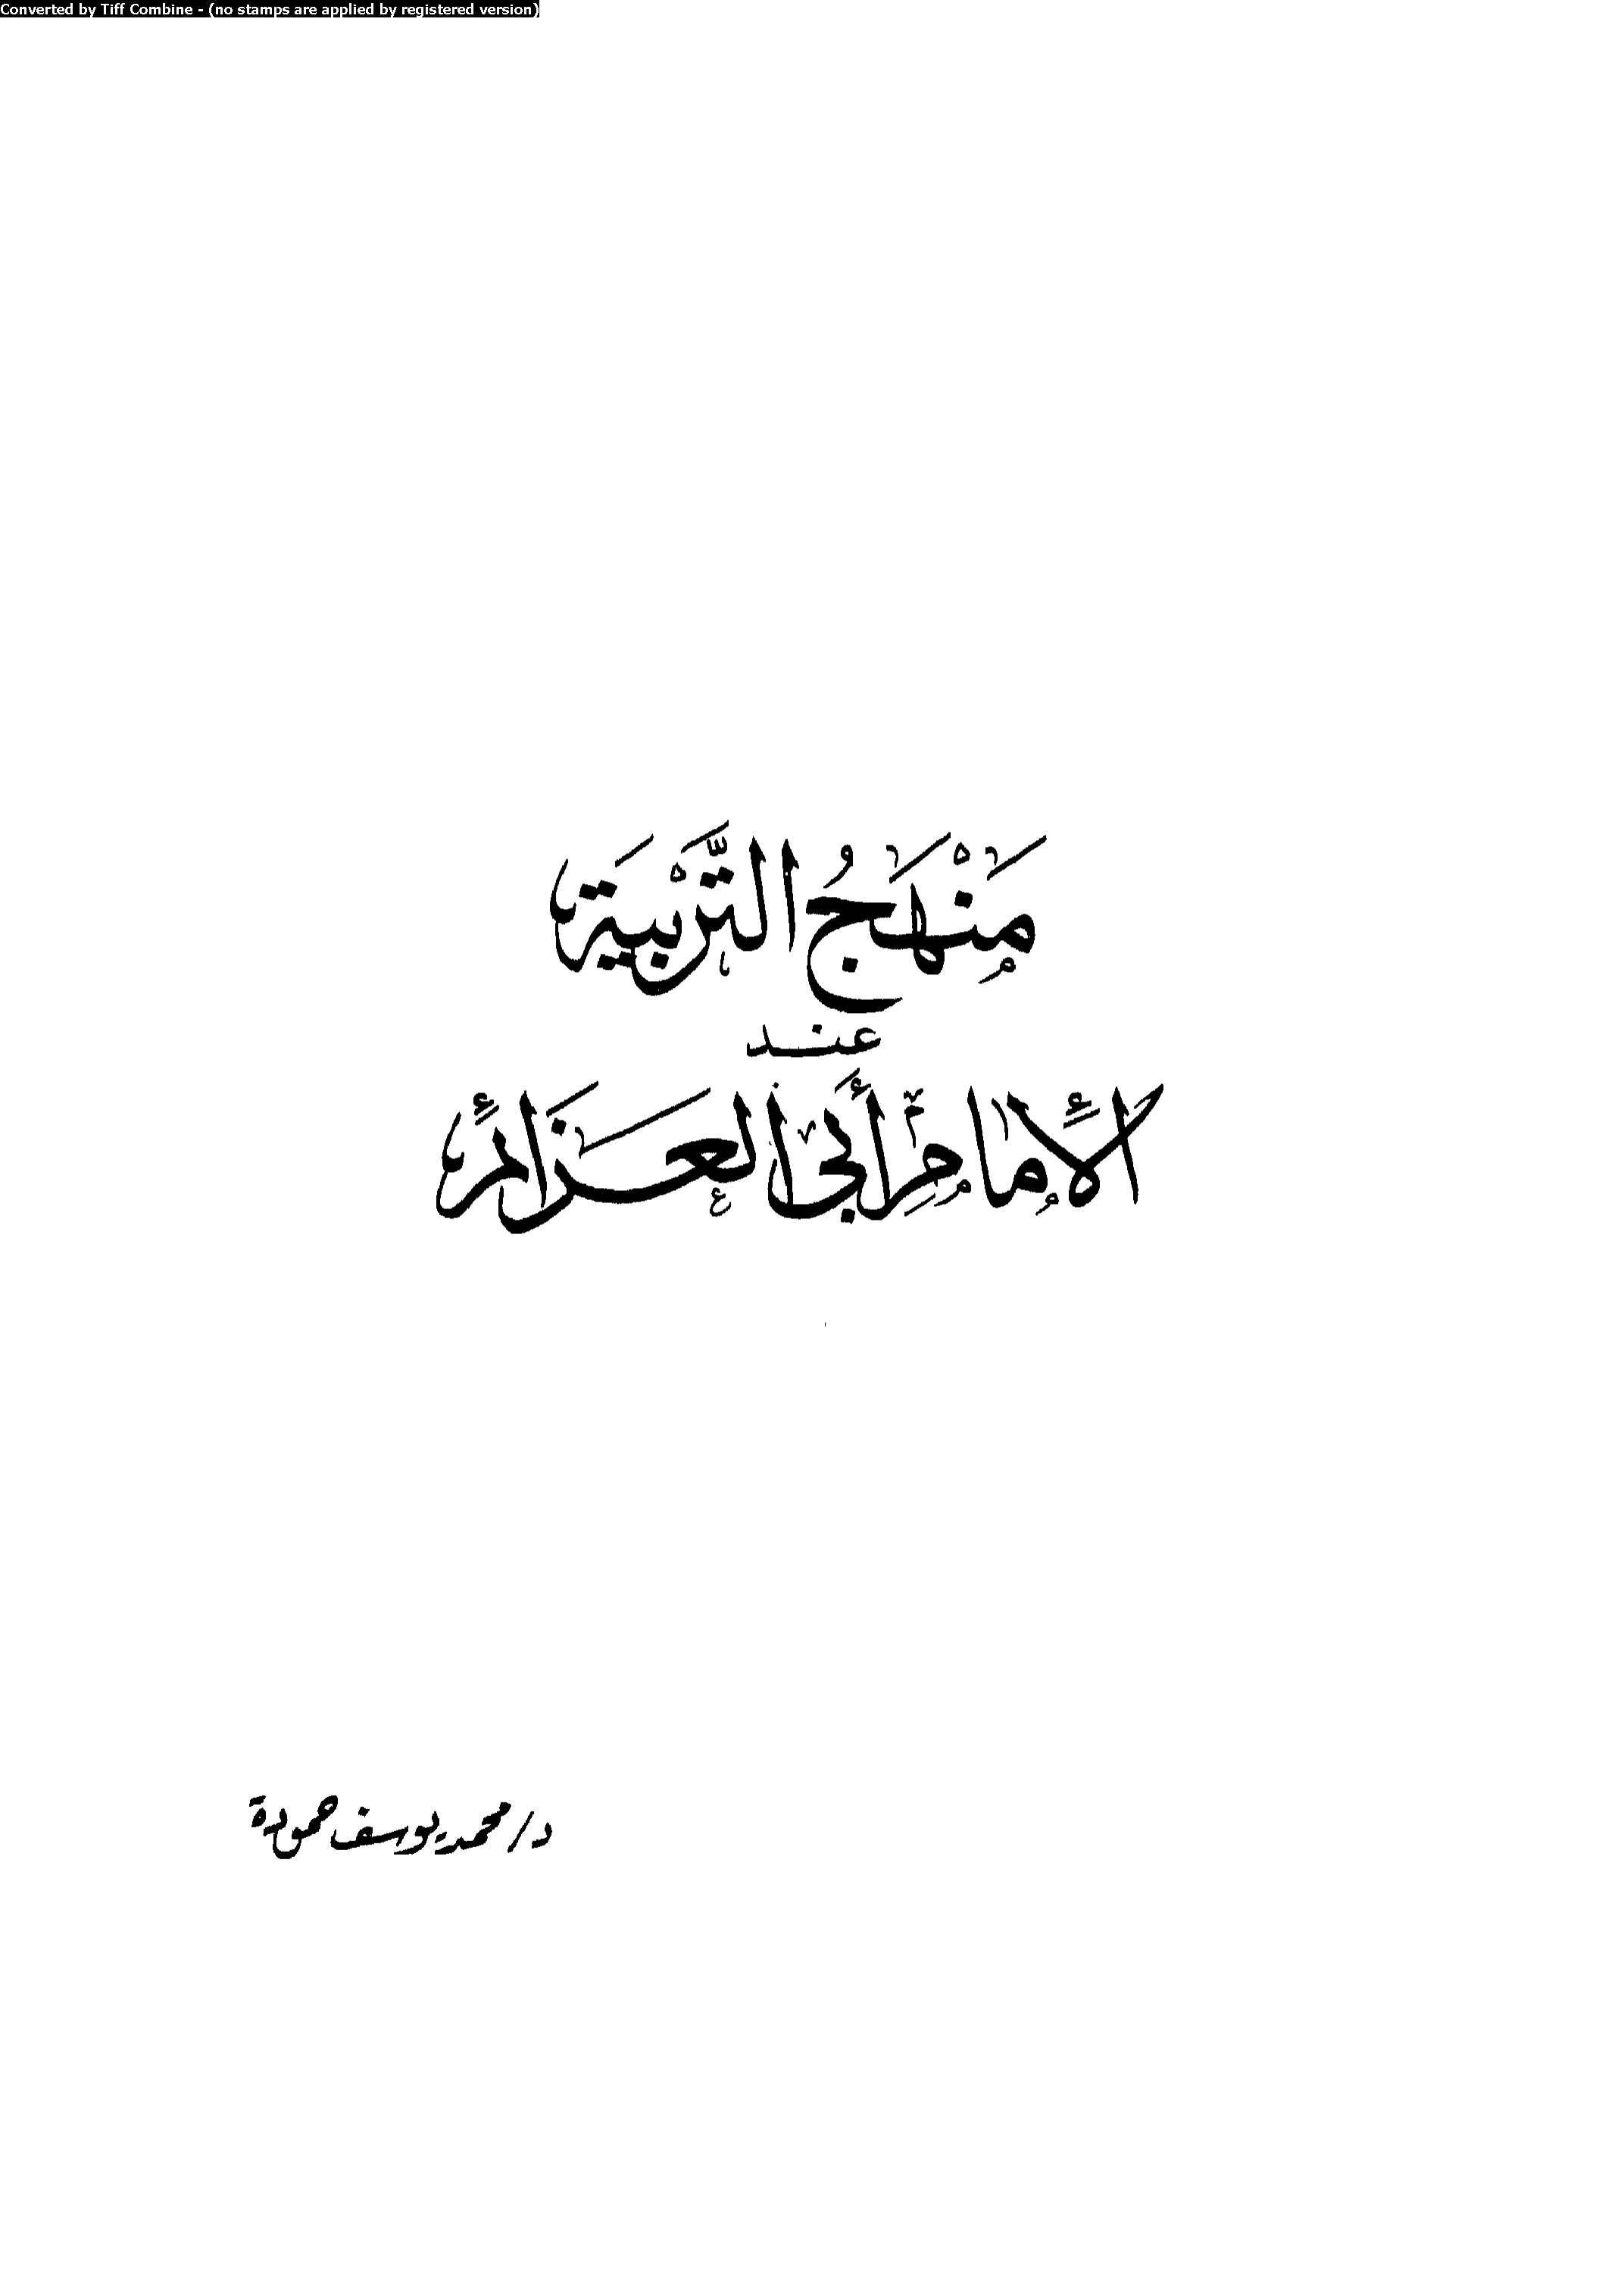 Converted by Tiff Combine - (no stamps are applied by registered version)
مَنْهَجُ التَّرْبِيَة
عند
الإمام أبى العَزَائم
د/محمد يوسف حمودة